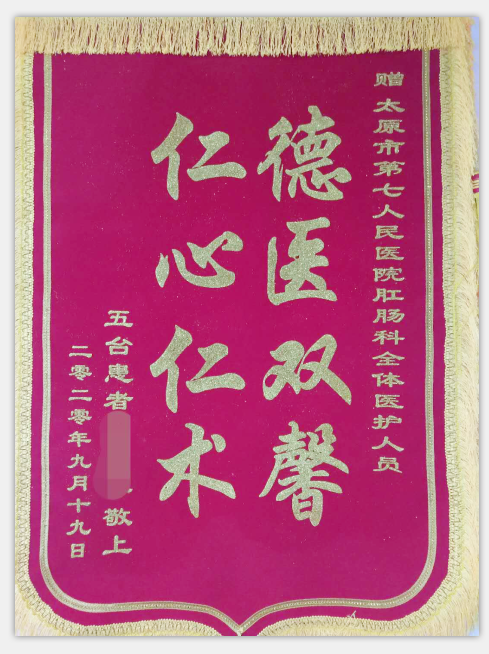 赠太原市第七人民医院肛肠科全体医护人员
德医双馨
仁心仁术
五台患者 敬上
二零二零年九月十九日